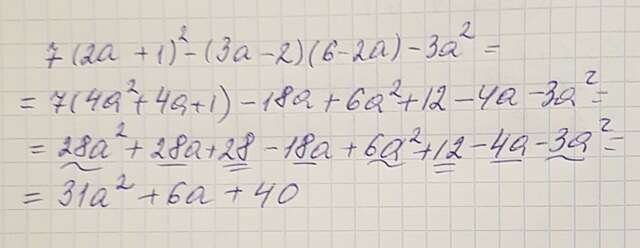 7(2a + 1)² - (3a - 2)(6 - 2a) - 3a² =
= 7(4a² + 4a + 1) - 18a + 6a² + 12 - 4a - 3a² =
= 28a² + 28a + 28 - 18a + 6a² + 12 - 4a - 3a² =
= 31a² + 6a + 40